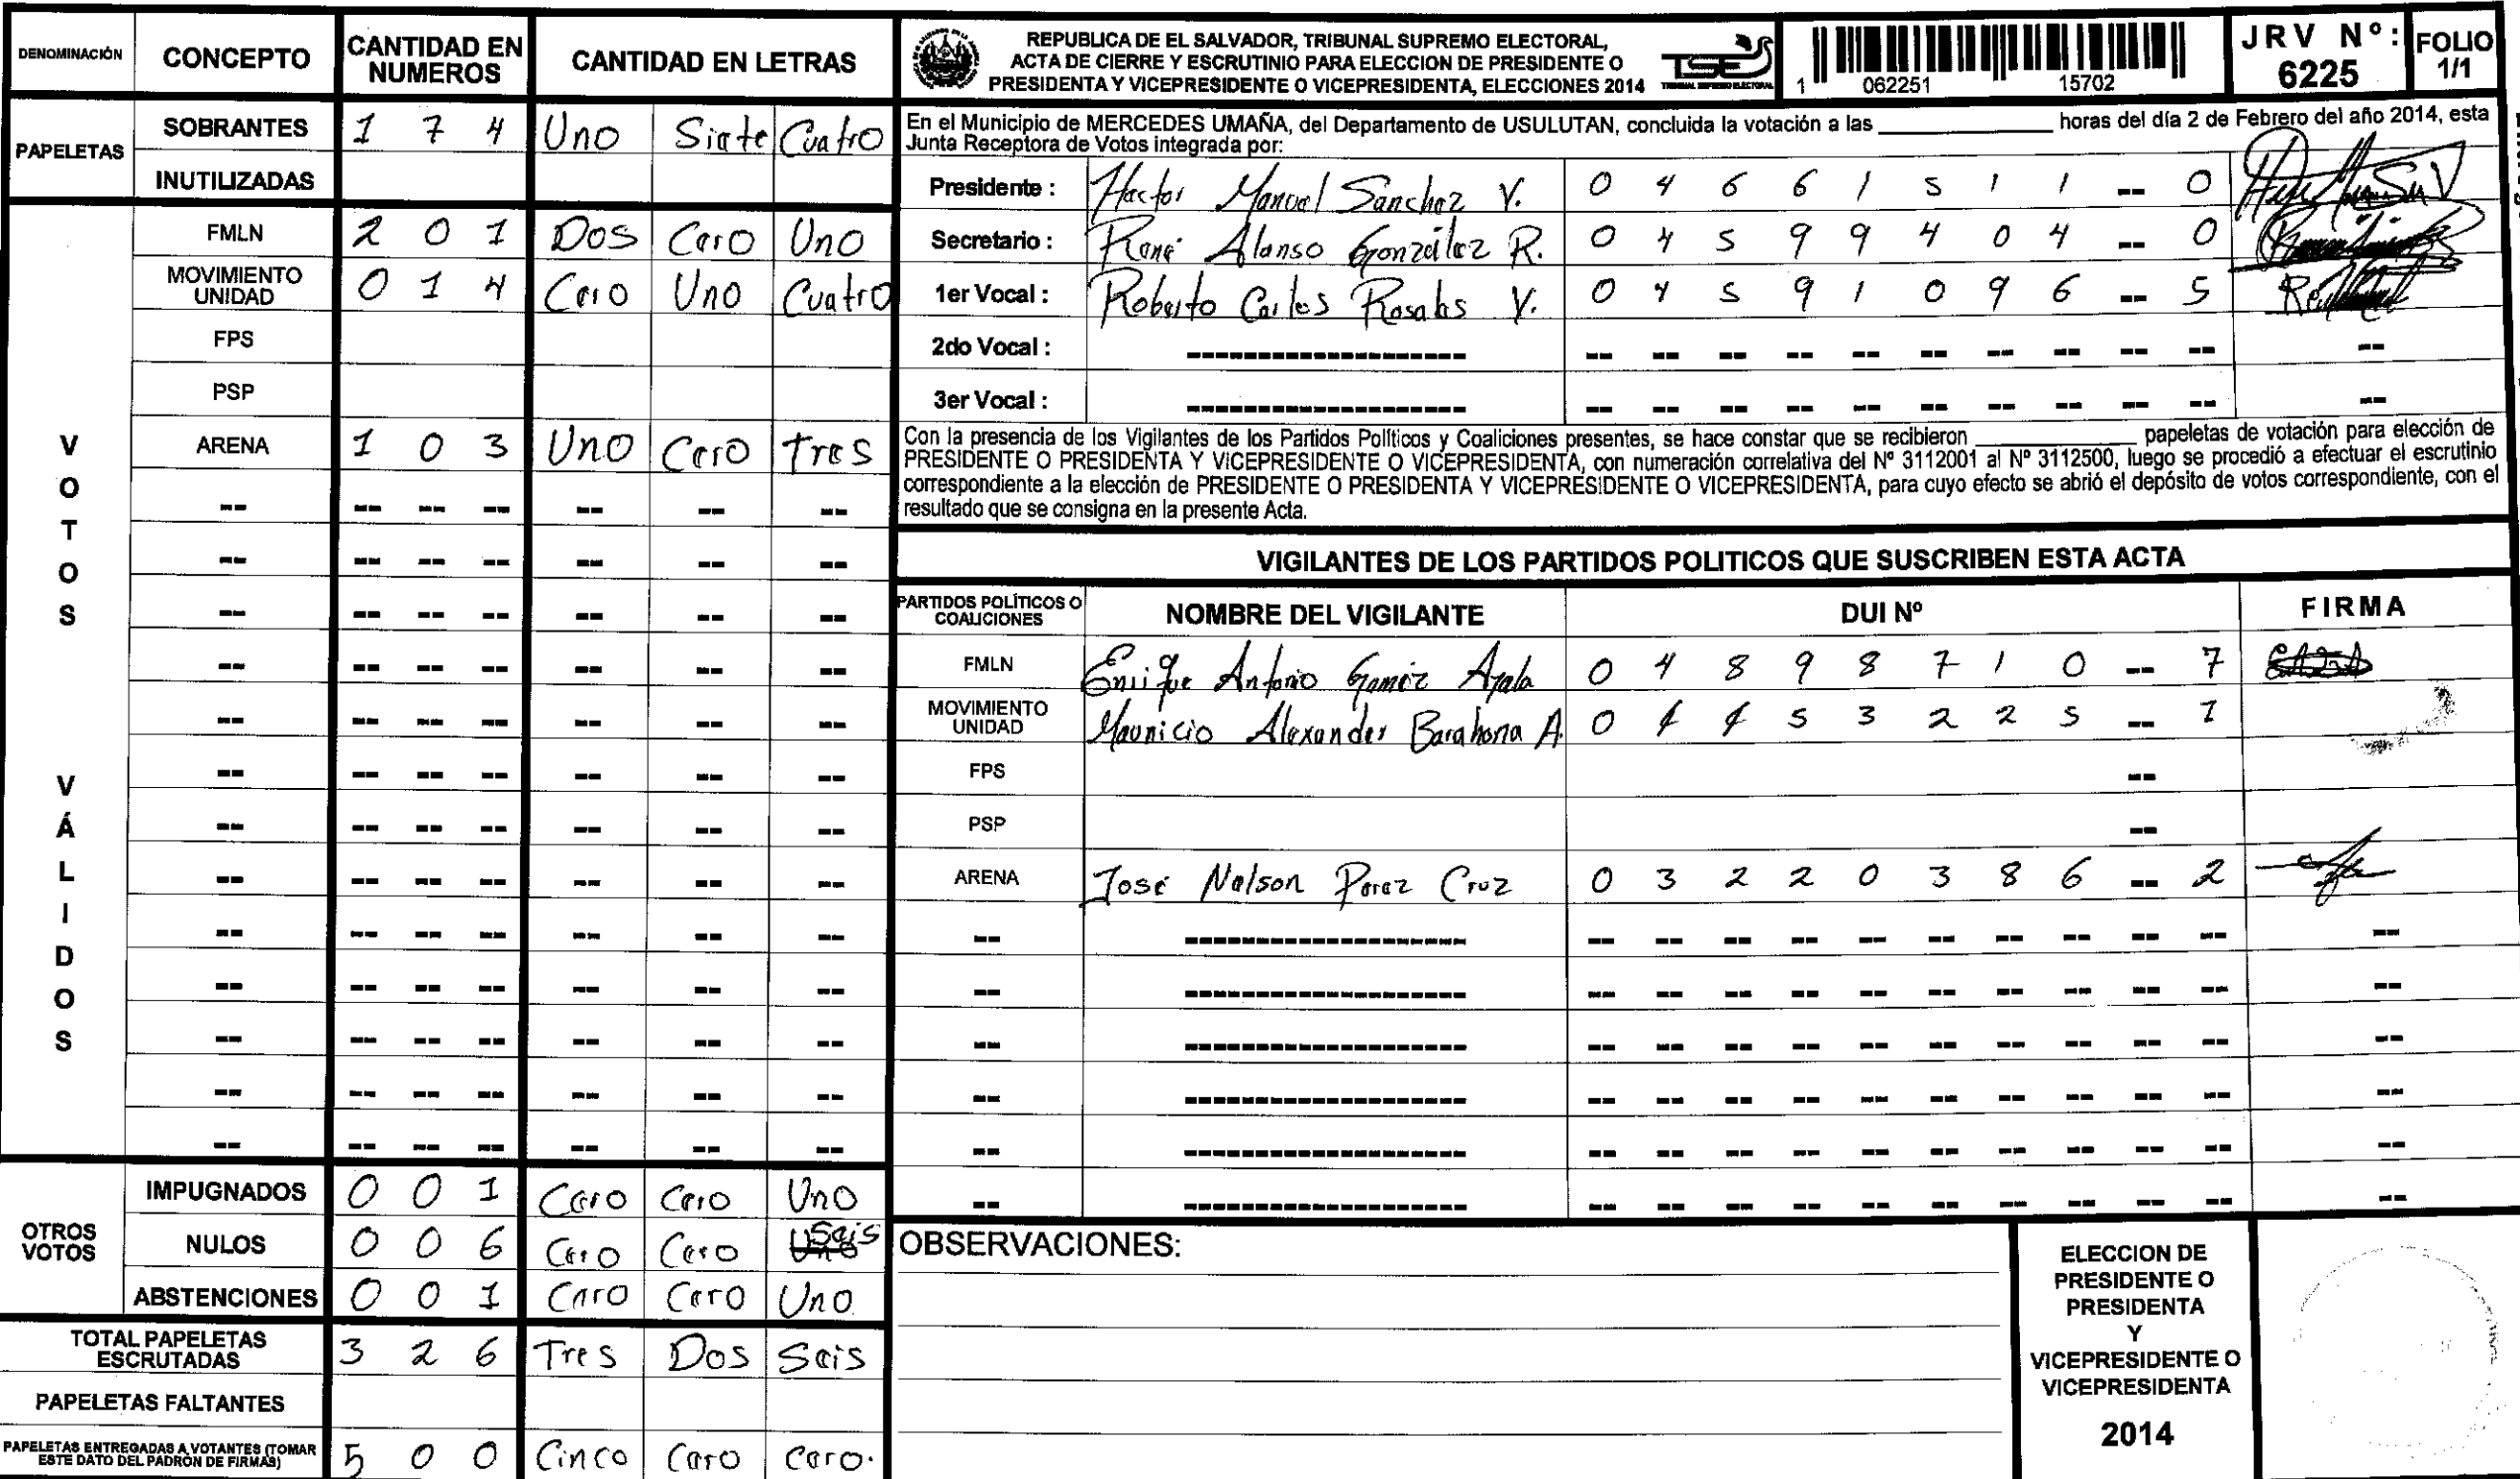 DENOMINACIÓN CONCEPTO CANTIDAD EN NUMEROS CANTIDAD EN LETRAS
PAPELETAS
SOBRANTES 1 7 4 Uno Siete Cuatro
INUTILIZADAS
VOTOS VÁLIDOS
FMLN 2 0 1 Dos Cero Uno
MOVIMIENTO UNIDAD 0 1 4 Cero Uno Cuatro
FPS
PSP
ARENA 1 0 3 Uno Cero Tres
-- -- -- -- -- -- --
-- -- -- -- -- -- --
-- -- -- -- -- -- --
-- -- -- -- -- -- --
-- -- -- -- -- -- --
-- -- -- -- -- -- --
-- -- -- -- -- -- --
-- -- -- -- -- -- --
-- -- -- -- -- -- --
-- -- -- -- -- -- --
-- -- -- -- -- -- --
-- -- -- -- -- -- --
-- -- -- -- -- -- --
OTROS VOTOS
IMPUGNADOS 0 0 1 Cero Cero Uno
NULOS 0 0 6 Cero Cero Seis
ABSTENCIONES 0 0 1 Cero Cero Uno
TOTAL PAPELETAS ESCRUTADAS 3 2 6 Tres Dos Seis
PAPELETAS FALTANTES
PAPELETAS ENTREGADAS A VOTANTES (TOMAR ESTE DATO DEL PADRON DE FIRMAS) 5 0 0 Cinco Cero Cero.
REPUBLICA DE EL SALVADOR, TRIBUNAL SUPREMO ELECTORAL,
ACTA DE CIERRE Y ESCRUTINIO PARA ELECCION DE PRESIDENTE O
PRESIDENTA Y VICEPRESIDENTE O VICEPRESIDENTA, ELECCIONES 2014
TSE
TRIBUNAL SUPREMO ELECTORAL
1 062251 15702
JRV Nº: 6225
FOLIO 1/1
En el Municipio de MERCEDES UMAÑA, del Departamento de USULUTAN, concluida la votación a las ____________ horas del día 2 de Febrero del año 2014, esta
Junta Receptora de Votos integrada por:
Presidente : Hector Manuel Sanchez V. 0 4 6 6 1 5 1 1 -- 0
Secretario : René Alonso González R. 0 4 5 9 9 4 0 4 -- 0
1er Vocal : Roberto Carlos Rosales V. 0 4 5 9 1 0 9 6 -- 5
2do Vocal : -------------------- -- -- -- -- -- -- -- -- -- -- --
3er Vocal : -------------------- -- -- -- -- -- -- -- -- -- -- --
Con la presencia de los Vigilantes de los Partidos Políticos y Coaliciones presentes, se hace constar que se recibieron ____________ papeletas de votación para elección de
PRESIDENTE O PRESIDENTA Y VICEPRESIDENTE O VICEPRESIDENTA, con numeración correlativa del Nº 3112001 al Nº 3112500, luego se procedió a efectuar el escrutinio
correspondiente a la elección de PRESIDENTE O PRESIDENTA Y VICEPRESIDENTE O VICEPRESIDENTA, para cuyo efecto se abrió el depósito de votos correspondiente, con el
resultado que se consigna en la presente Acta.
VIGILANTES DE LOS PARTIDOS POLITICOS QUE SUSCRIBEN ESTA ACTA
PARTIDOS POLÍTICOS O COALICIONES NOMBRE DEL VIGILANTE DUI Nº FIRMA
FMLN Enrique Antonio Gomez Ayala 0 4 8 9 8 7 1 0 -- 7
MOVIMIENTO UNIDAD Mauricio Alexander Barahona A. 0 4 4 5 3 2 2 5 -- 1
FPS --
PSP --
ARENA José Nelson Perez Cruz 0 3 2 2 0 3 8 6 -- 2
-- -------------------- -- -- -- -- -- -- -- -- -- -- --
-- -------------------- -- -- -- -- -- -- -- -- -- -- --
-- -------------------- -- -- -- -- -- -- -- -- -- -- --
-- -------------------- -- -- -- -- -- -- -- -- -- -- --
-- -------------------- -- -- -- -- -- -- -- -- -- -- --
-- -------------------- -- -- -- -- -- -- -- -- -- -- --
OBSERVACIONES:
ELECCION DE
PRESIDENTE O
PRESIDENTA
Y
VICEPRESIDENTE O
VICEPRESIDENTA
2014